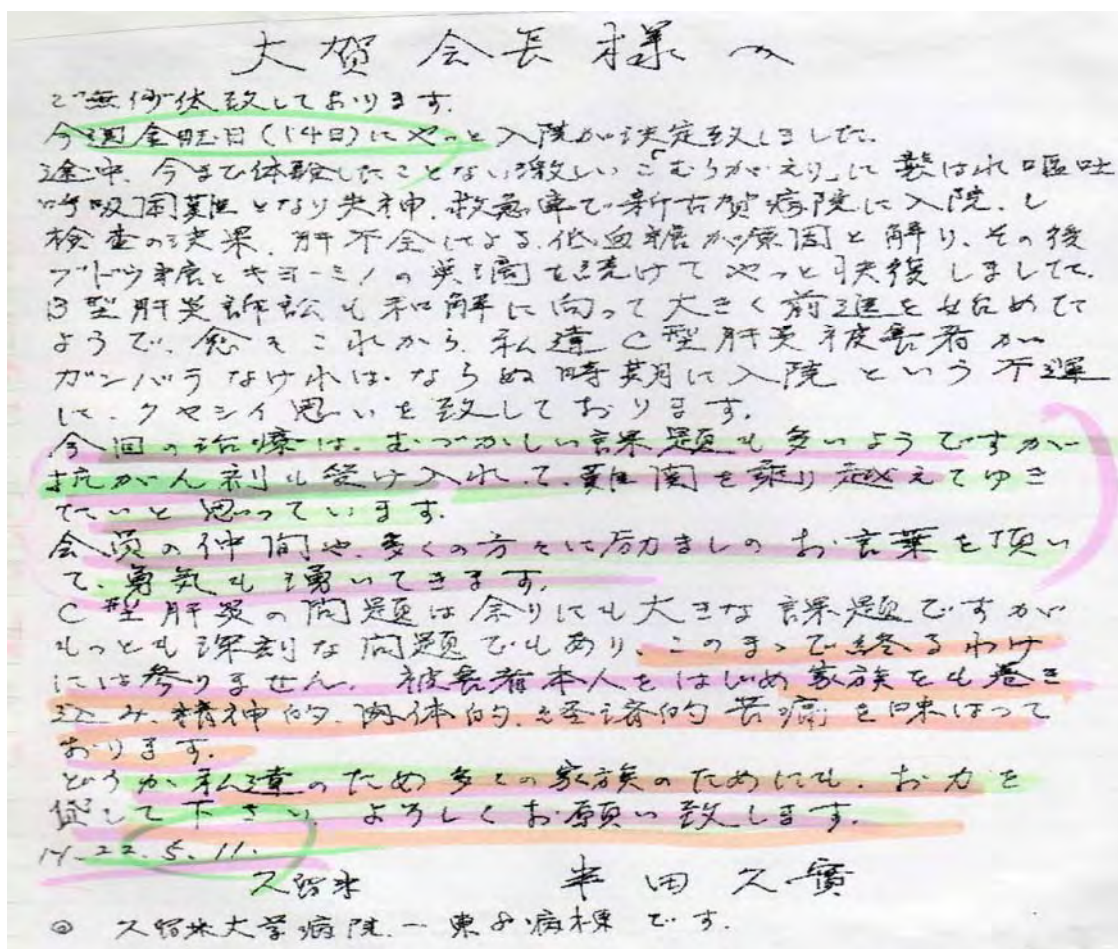 大賀会長様へ
ご無沙汰致しております。
今週金曜日(14日)にやっと入院が決定致しました。
途中、今まで体験したことない激しい「こむらがえり」に襲はれ嘔吐
呼吸困難となり失神、救急車で新古賀病院に入院、し
検査の決果、肝不全による、低血糖が原因と解り、その後
ブドウ糖とキョーミノの点滴を続けてやっと快復しました。
B型肝炎訴訟も和解に向って大きく前進を始めた
ようで、愈々これから、私達C型肝炎被害者が
ガンバラなければならぬ時期に入院という不運
に、クヤシイ思いを致しております。
今回の治療は、むづかしい課題も多いようですが
抗がん剤も受け入れて、難関を乗り越えてゆき
たいと思っています。
会員の仲間や、多くの方々に励ましのお言葉を頂い
て、勇気も湧いてきます。
C型肝炎の問題は余りにも大きな課題ですが
もっとも深刻な問題でもあり、このまゝで終るわけ
には参りません。被害者本人をはじめ家族をも巻き
込み、精神的、肉体的、経済的苦痛を味はって
おります。
どうか私達のため多くの家族のためにも、お力を
貸して下さい、よろしくお願い致します。
H.22.5.11.
久留米 半田久實
◎ 久留米大学病院、一東 病棟です。